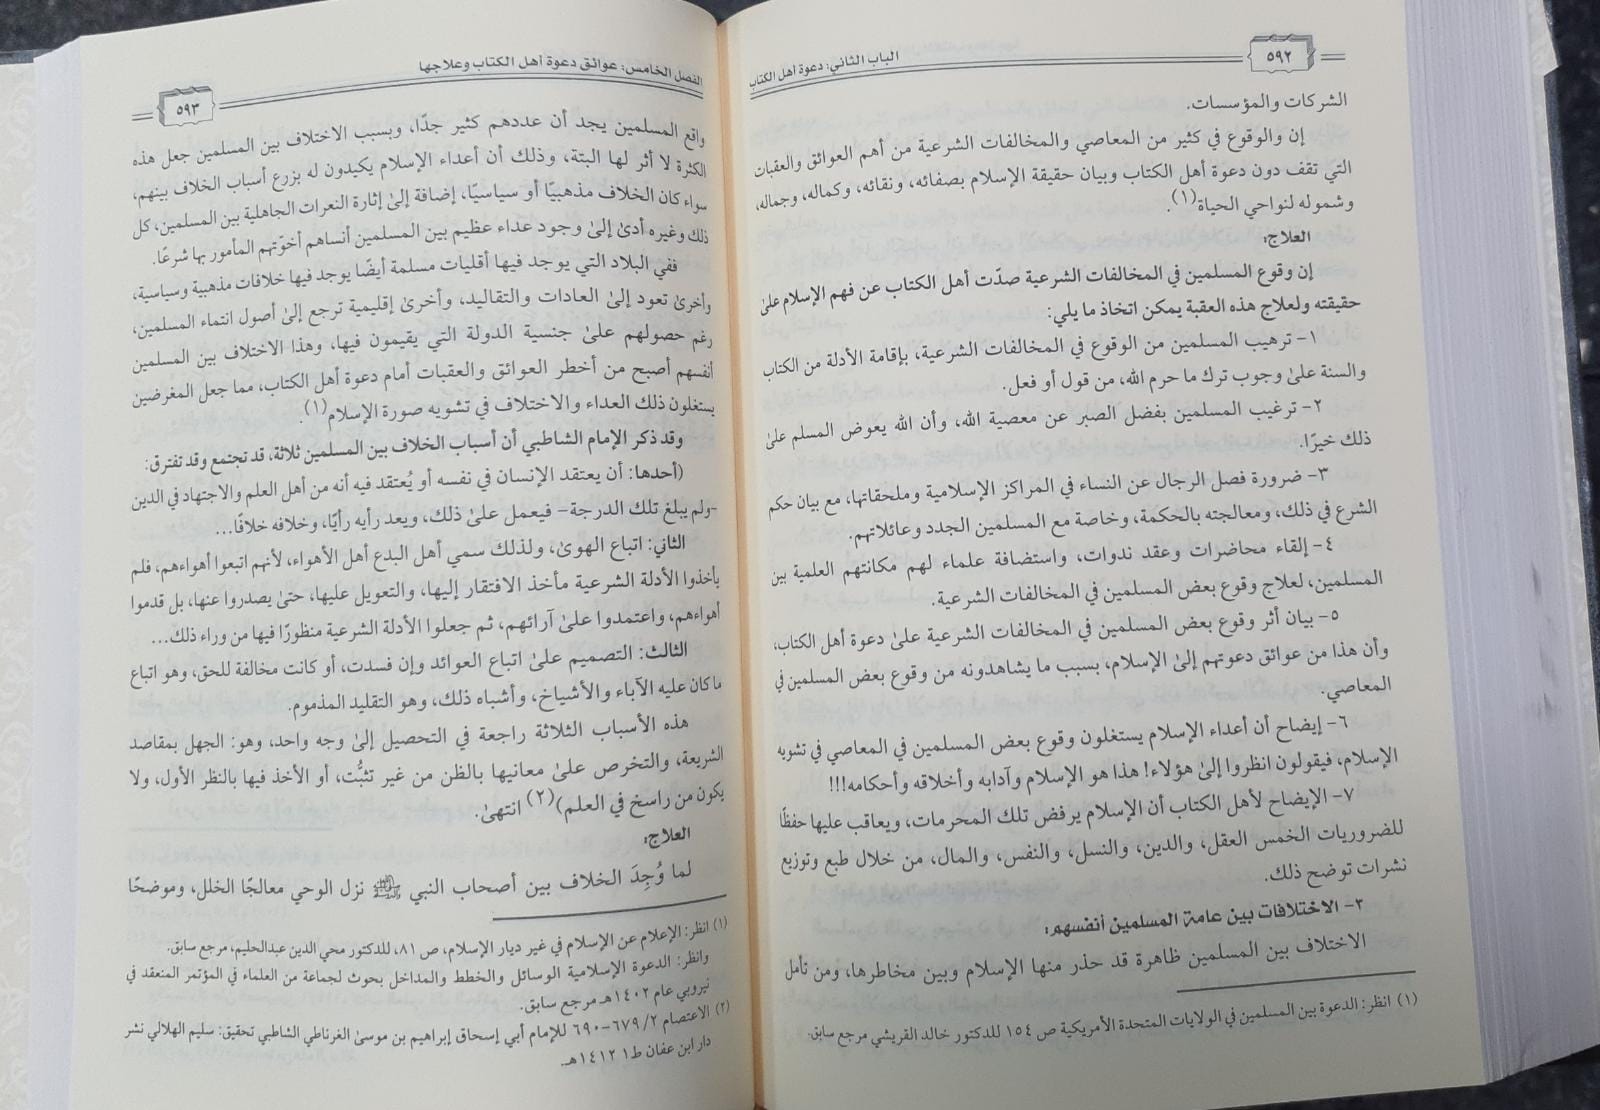 الباب الثاني: دعوة أهل الكتاب
٥٩٢
الشركات والمؤسسات.
إن والوقوع في كثير من المعاصي والمخالفات الشرعية من أهم العوائق والعقبات
التي تقف دون دعوة أهل الكتاب وبيان حقيقة الإسلام بصفائه، ونقائه، وكماله، وجماله،
وشموله لنواحي الحياة(١).
العلاج:
إن وقوع المسلمين في المخالفات الشرعية صدّت أهل الكتاب عن فهم الإسلام علىٰ
حقيقته ولعلاج هذه العقبة يمكن اتخاذ ما يلي:
١- ترهيب المسلمين من الوقوع في المخالفات الشرعية، بإقامة الأدلة من الكتاب
والسنة علىٰ وجوب ترك ما حرم الله، من قول أو فعل.
٢- ترغيب المسلمين بفضل الصبر عن معصية الله، وأن الله يعوض المسلم علىٰ
ذلك خيرًا.
٣- ضرورة فصل الرجال عن النساء في المراكز الإسلامية وملحقاتها، مع بيان حكم
الشرع في ذلك، ومعالجته بالحكمة، وخاصة مع المسلمين الجدد وعائلاتهم.
٤- إلقاء محاضرات وعقد ندوات، واستضافة علماء لهم مكانتهم العلمية بين
المسلمين، لعلاج وقوع بعض المسلمين في المخالفات الشرعية.
٥- بيان أثر وقوع بعض المسلمين في المخالفات الشرعية علىٰ دعوة أهل الكتاب،
وأن هذا من عوائق دعوتهم إلىٰ الإسلام، بسبب ما يشاهدونه من وقوع بعض المسلمين في
المعاصي.
٦- إيضاح أن أعداء الإسلام يستغلون وقوع بعض المسلمين في المعاصي في تشويه
الإسلام، فيقولون انظروا إلىٰ هؤلاء! هذا هو الإسلام وآدابه وأخلاقه وأحكامه!!!
٧- الإيضاح لأهل الكتاب أن الإسلام يرفض تلك المحرمات، ويعاقب عليها حفظًا
للضروريات الخمس العقل، والدين، والنسل، والنفس، والمال، من خلال طبع وتوزيع
نشرات توضح ذلك.
٣- الاختلافات بين عامة المسلمين أنفسهم:
الاختلاف بين المسلمين ظاهرة قد حذر منها الإسلام وبين مخاطرها، ومن تأمل
(١) انظر: الدعوة بين المسلمين في الولايات المتحدة الأمريكية ص ١٥٤ للدكتور خالد القريشي مرجع سابق.
الفصل الخامس: عوائق دعوة أهل الكتاب وعلاجها
٥٩٣
واقع المسلمين يجد أن عددهم كثير جدًّا، وبسبب الاختلاف بين المسلمين جعل هذه
الكثرة لا أثر لها البتة، وذلك أن أعداء الإسلام يكيدون له بزرع أسباب الخلاف بينهم،
سواء كان الخلاف مذهبيًا أو سياسيًا، إضافة إلىٰ إثارة النعرات الجاهلية بين المسلمين، كل
ذلك وغيره أدىٰ إلىٰ وجود عداء عظيم بين المسلمين أنساهم أخوّتهم المأمور بها شرعًا.
ففي البلاد التي يوجد فيها أقليات مسلمة أيضًا يوجد فيها خلافات مذهبية وسياسية،
وأخرىٰ تعود إلىٰ العادات والتقاليد، وأخرىٰ إقليمية ترجع إلىٰ أصول انتماء المسلمين،
رغم حصولهم علىٰ جنسية الدولة التي يقيمون فيها، وهذا الاختلاف بين المسلمين
أنفسهم أصبح من أخطر العوائق والعقبات أمام دعوة أهل الكتاب، مما جعل المغرضين
يستغلون ذلك العداء والاختلاف في تشويه صورة الإسلام(١).
وقد ذكر الإمام الشاطبي أن أسباب الخلاف بين المسلمين ثلاثة، قد تجتمع وقد تفترق:
(أحدها: أن يعتقد الإنسان في نفسه أو يُعتقد فيه أنه من أهل العلم والاجتهاد في الدين
-ولم يبلغ تلك الدرجة- فيعمل علىٰ ذلك، ويعد رأيه رأيًا، وخلافه خلافًا...
الثاني: اتباع الهوىٰ، ولذلك سمي أهل البدع أهل الأهواء، لأنهم اتبعوا أهواءهم، فلم
يأخذوا الأدلة الشرعية مأخذ الافتقار إليها، والتعويل عليها، حتىٰ يصدروا عنها، بل قدموا
أهواءهم، واعتمدوا علىٰ آرائهم، ثم جعلوا الأدلة الشرعية منظورًا فيها من وراء ذلك...
الثالث: التصميم علىٰ اتباع العوائد وإن فسدت، أو كانت مخالفة للحق، وهو اتباع
ما كان عليه الآباء والأشياخ، وأشباه ذلك، وهو التقليد المذموم.
هذه الأسباب الثلاثة راجعة في التحصيل إلىٰ وجه واحد، وهو: الجهل بمقاصد
الشريعة، والتخرص علىٰ معانيها بالظن من غير تثبُّت، أو الأخذ فيها بالنظر الأول، ولا
يكون من راسخ في العلم)(٢) انتهىٰ.
العلاج:
لما وُجِدَ الخلاف بين أصحاب النبي ﷺ نزل الوحي معالجًا الخلل، وموضحًا
(١) انظر: الإعلام عن الإسلام في غير ديار الإسلام، ص ٨١، للدكتور محي الدين عبدالحليم، مرجع سابق.
وانظر: الدعوة الإسلامية الوسائل والخطط والمداخل بحوث لجماعة من العلماء في المؤتمر المنعقد في
نيروبي عام ١٤٠٢هـ مرجع سابق.
(٢) الاعتصام ٢/ ٦٧٩-٦٩٠ للإمام أبي إسحاق إبراهيم بن موسىٰ الغرناطي الشاطبي تحقيق: سليم الهلالي نشر
دار ابن عفان ط١ ١٤١٢هـ.